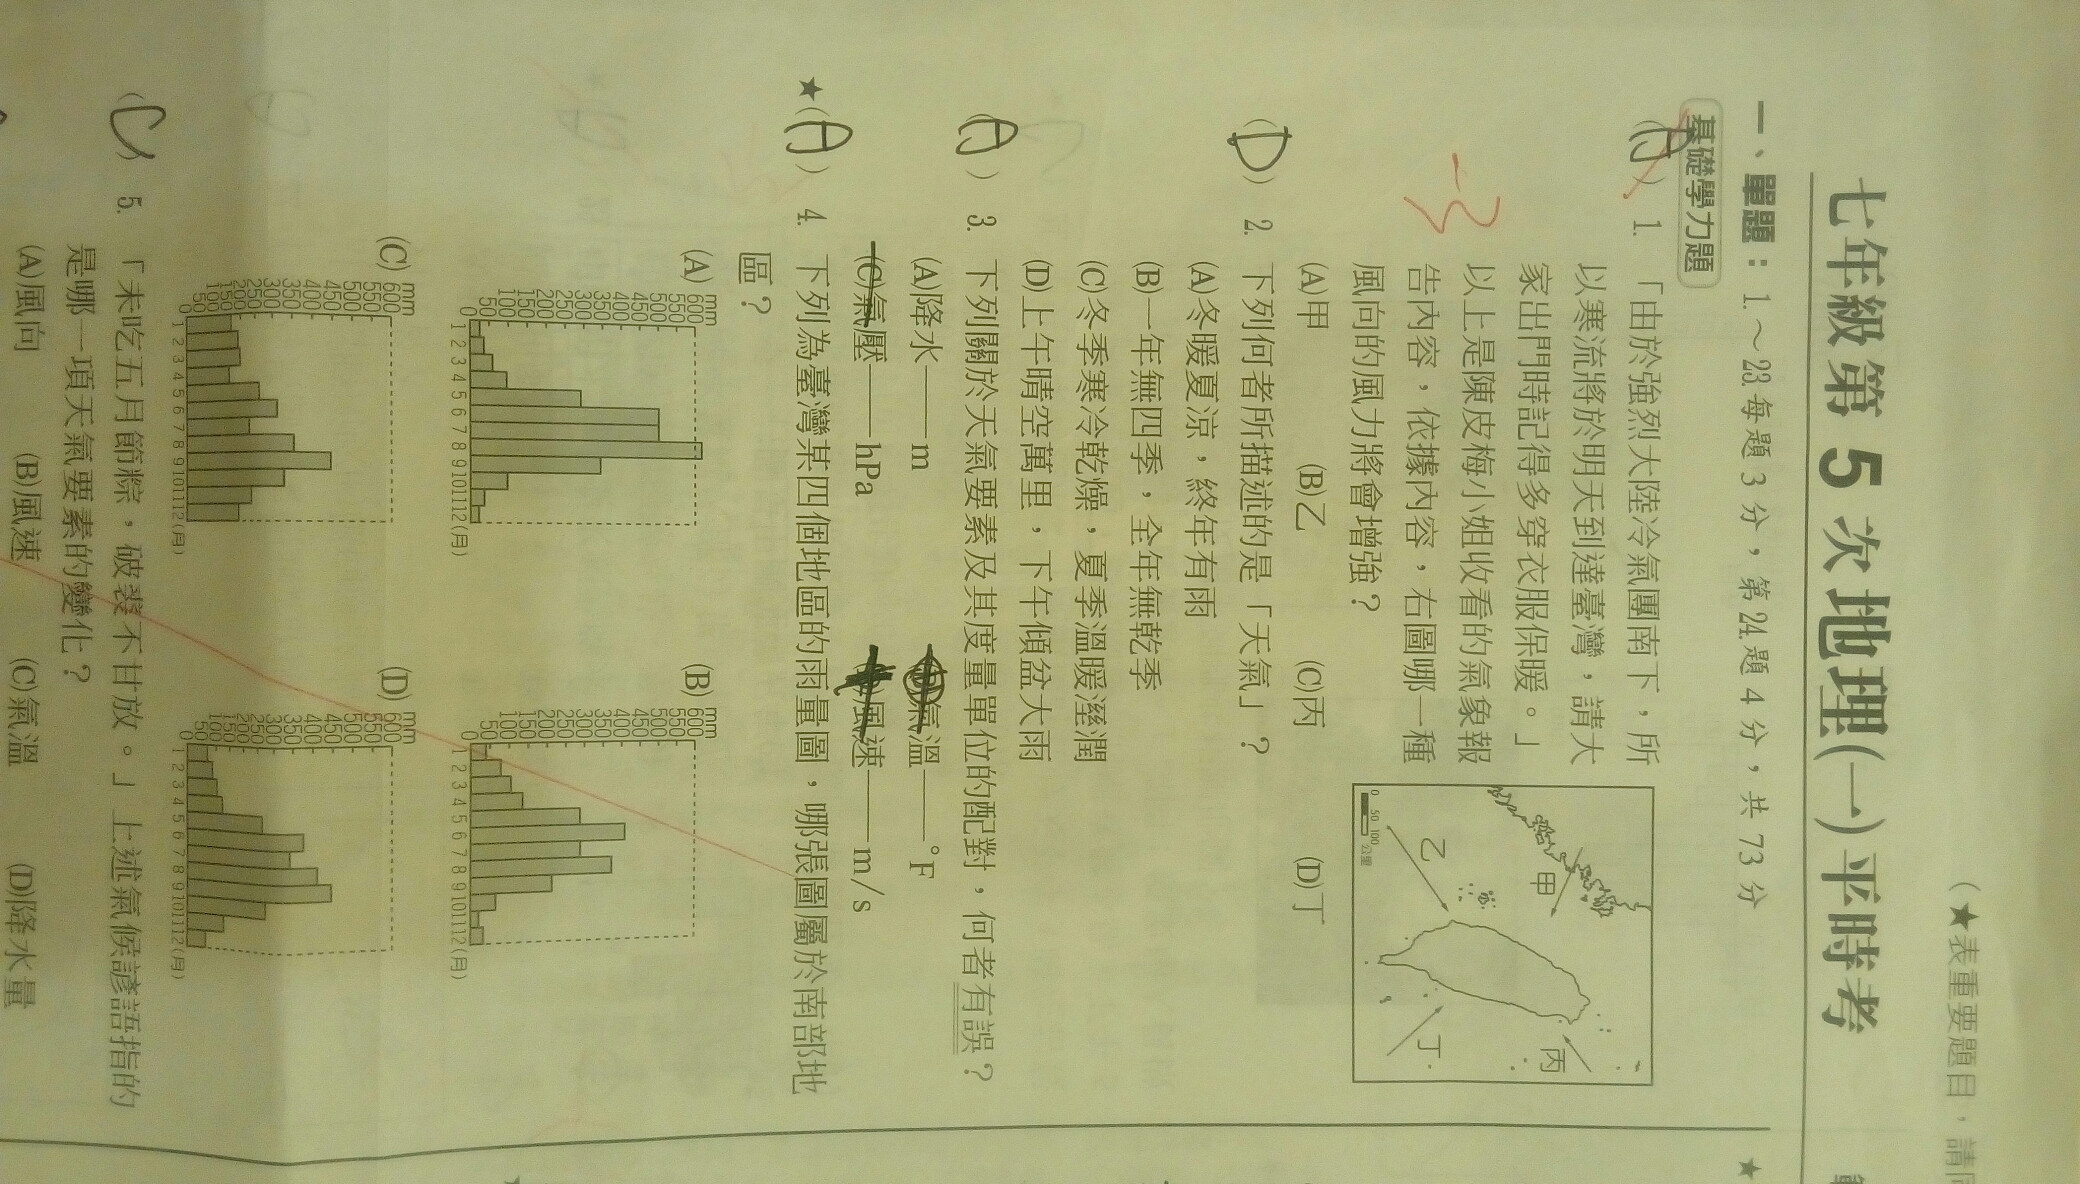 (★表重要題目，請
七年級第5次地理(一)平時考
一、單題：1.～23.每題3分，第24.題4分，共73分
基礎學力題
(A) 1. 「由於強烈大陸冷氣團南下，所
以寒流將於明天到達臺灣，請大
家出門時記得多穿衣服保暖。」
以上是陳皮梅小姐收看的氣象報
告內容，依據內容，右圖哪一種
風向的風力將會增強？
(A)甲 (B)乙 (C)丙 (D)丁
甲
乙
丙
丁
0 50 100公里
-3
(D) 2. 下列何者所描述的是「天氣」？
(A)冬暖夏涼，終年有雨
(B)一年無四季，全年無乾季
(C)冬季寒冷乾燥，夏季溫暖溼潤
(D)上午晴空萬里，下午傾盆大雨
(A) 3. 下列關於天氣要素及其度量單位的配對，何者有誤？
(A)降水——m (B)氣溫——°F
(C)氣壓——hPa (D)風速——m/s
★(A) 4. 下列為臺灣某四個地區的雨量圖，哪張圖屬於南部地
區？
(A) mm
600
550
500
450
400
350
300
250
200
150
100
50
0
1 2 3 4 5 6 7 8 9 10 11 12 (月)
(B) mm
600
550
500
450
400
350
300
250
200
150
100
50
0
1 2 3 4 5 6 7 8 9 10 11 12 (月)
(C) mm
600
550
500
450
400
350
300
250
200
150
100
50
0
1 2 3 4 5 6 7 8 9 10 11 12 (月)
(D) mm
600
550
500
450
400
350
300
250
200
150
100
50
0
1 2 3 4 5 6 7 8 9 10 11 12 (月)
(C) 5. 「未吃五月節粽，破裘不甘放。」上述氣候諺語指的
是哪一項天氣要素的變化？
(A)風向 (B)風速 (C)氣溫 (D)降水量